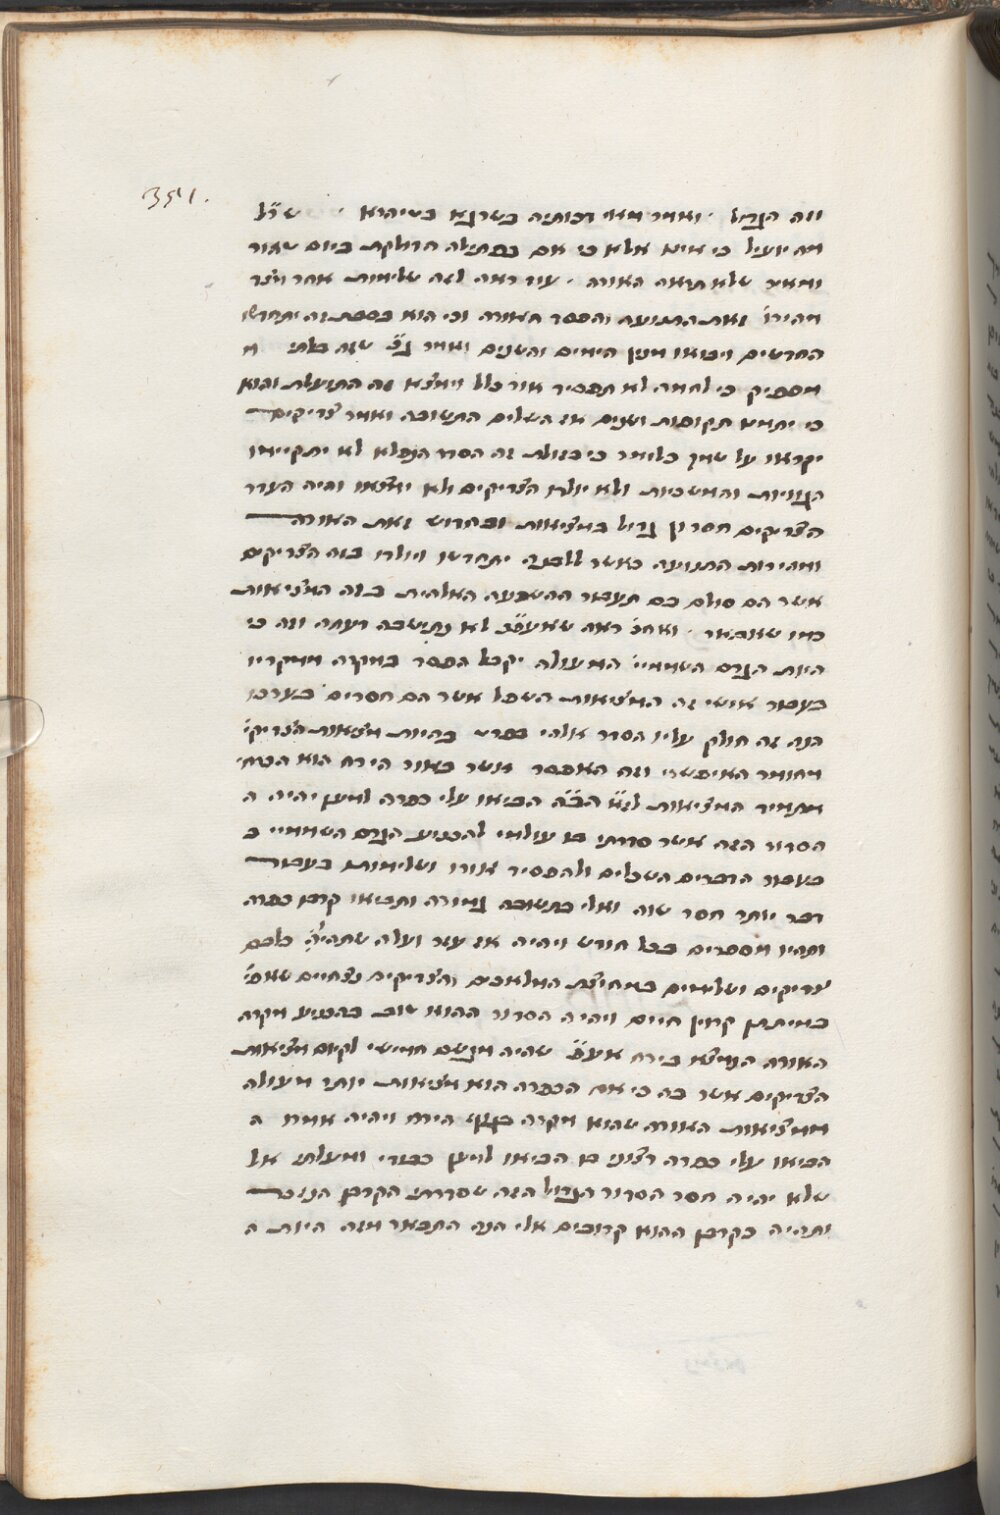 351.
וזה הגדול . ואמר מאי רבותיה בשרגא בטיהרא . ש״ל
מה יועיל כי אינו אלא כי אם כפתילה הדולקת ביום שאור
ומאיר שלא תראה האורה . עוד ראה לזה שלימות אחר וצד
מהירו׳ זאת התנועה והפסד האורה וכי הוא בסבת זה יתחדשו
החדשים ויבואו מנין הימים והשנים ואמר שזה בלתי מ
מספיק כי לחמה לא תפסיד אור כלל וימצא זה התועלת והוא
כי ימנא תקופות ושנים אז השלים התשובה ואמר צדיקים
יקראו על שמך כלומר כי בזולת זה הסדר הנפלא לא יתקיימו
הגוויות והמשכיות ולא יולדו הצדיקים ולא ימצאו והיה העדר
הצדיקים חסרון גדול במציאות ובחדוש זאת האורה
ומהירות התנועה כאשר ללבנה יתחדשו ויולדו בזה הצדיקים
אשר הם סולם בם תעבור ההשפעה האלהית בזה המציאות
כמו שאבאר . ואחר ראה שאעפ״כ לא נתישבה דעתה וזה כי
היות הגרם השמימיי המעולה יקבל הפסד במקרה ממקריו
בעבור אישי זה המציאות השפל אשר הם חסרים בערכו
הנה זה חולק עליו הסדר אלהי בהיות מציאות הצדיקי׳
מחומר האיפשרי וזה האפסר אשר באור הירח הוא הכרחי
מתמיד המציאות הב״ה הביאו עלי כפרה למען יהיה ה
הסדור הזה אשר סדרתי בו עולמי להכניע הגרם השמימיי ב
בעבור הדברים השפלים ולהפסיד אורו ושלימותו בעבור
דבר יותר חסר שוה ואלי בתשובה גמורה ותביאו קרבן כפרה
ותהיו מספרים בכל חודש ויהיה אז עזר ועלה שתהי׳ כלכם
צדיקים ושלימים במחיצת המלאכים והצדיקים נצחיים שאפי׳
במיתתן קרויין חיים ויהיה הסדור ההוא שוב בהכניע מקרה
האורה הנמצא בירח אעפ״כ שהיה מגשם חמישי לקיום מציאות
הצדיקים אשר בה כי את הכפרה הוא מציאות יותר מעולה
ממציאות האורה שהוא מקרה בגוף הירח ויהיה אמרו ה
הביאו עלי כפרה רצוני בו הביאו למען כבודי ומעלתי אל
שלא יהיה חסר הסדור הגדול הזה שסדרתי הקרבן הנזכר
ותהיה בקרבן ההוא קרובים אלי הנה התבאר מזה היות ה